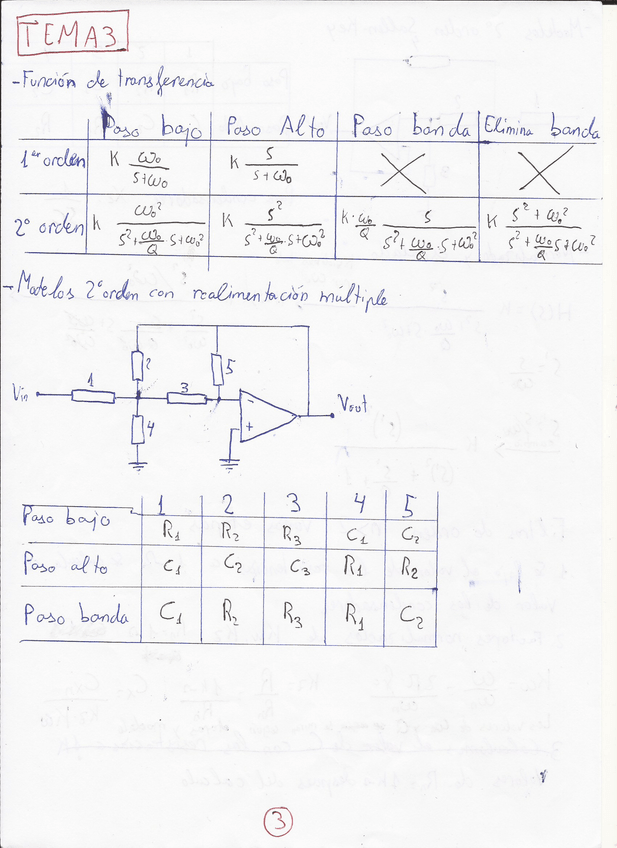 TEMA3
-Función de transferencia
Paso bajo Paso Alto Paso banda Elimina banda
1er orden K ω₀/(s+ω₀) K s/(s+ω₀)
2º orden K ω₀²/(s²+ω₀/Q·s+ω₀²) K s²/(s²+ω₀/Q·s+ω₀²) K·ω₀/Q s/(s²+ω₀/Q·s+ω₀²) K (s²+ω₀²)/(s²+ω₀/Q s+ω₀²)
-Modelos 2º orden con realimentación múltiple
2 5
Vin 1 3 - Vout
4 +
1 2 3 4 5
Paso bajo R₁ R₂ R₃ C₁ C₂
Paso alto C₁ C₂ C₃ R₁ R₂
Paso banda C₁ R₂ R₃ R₁ C₂
3